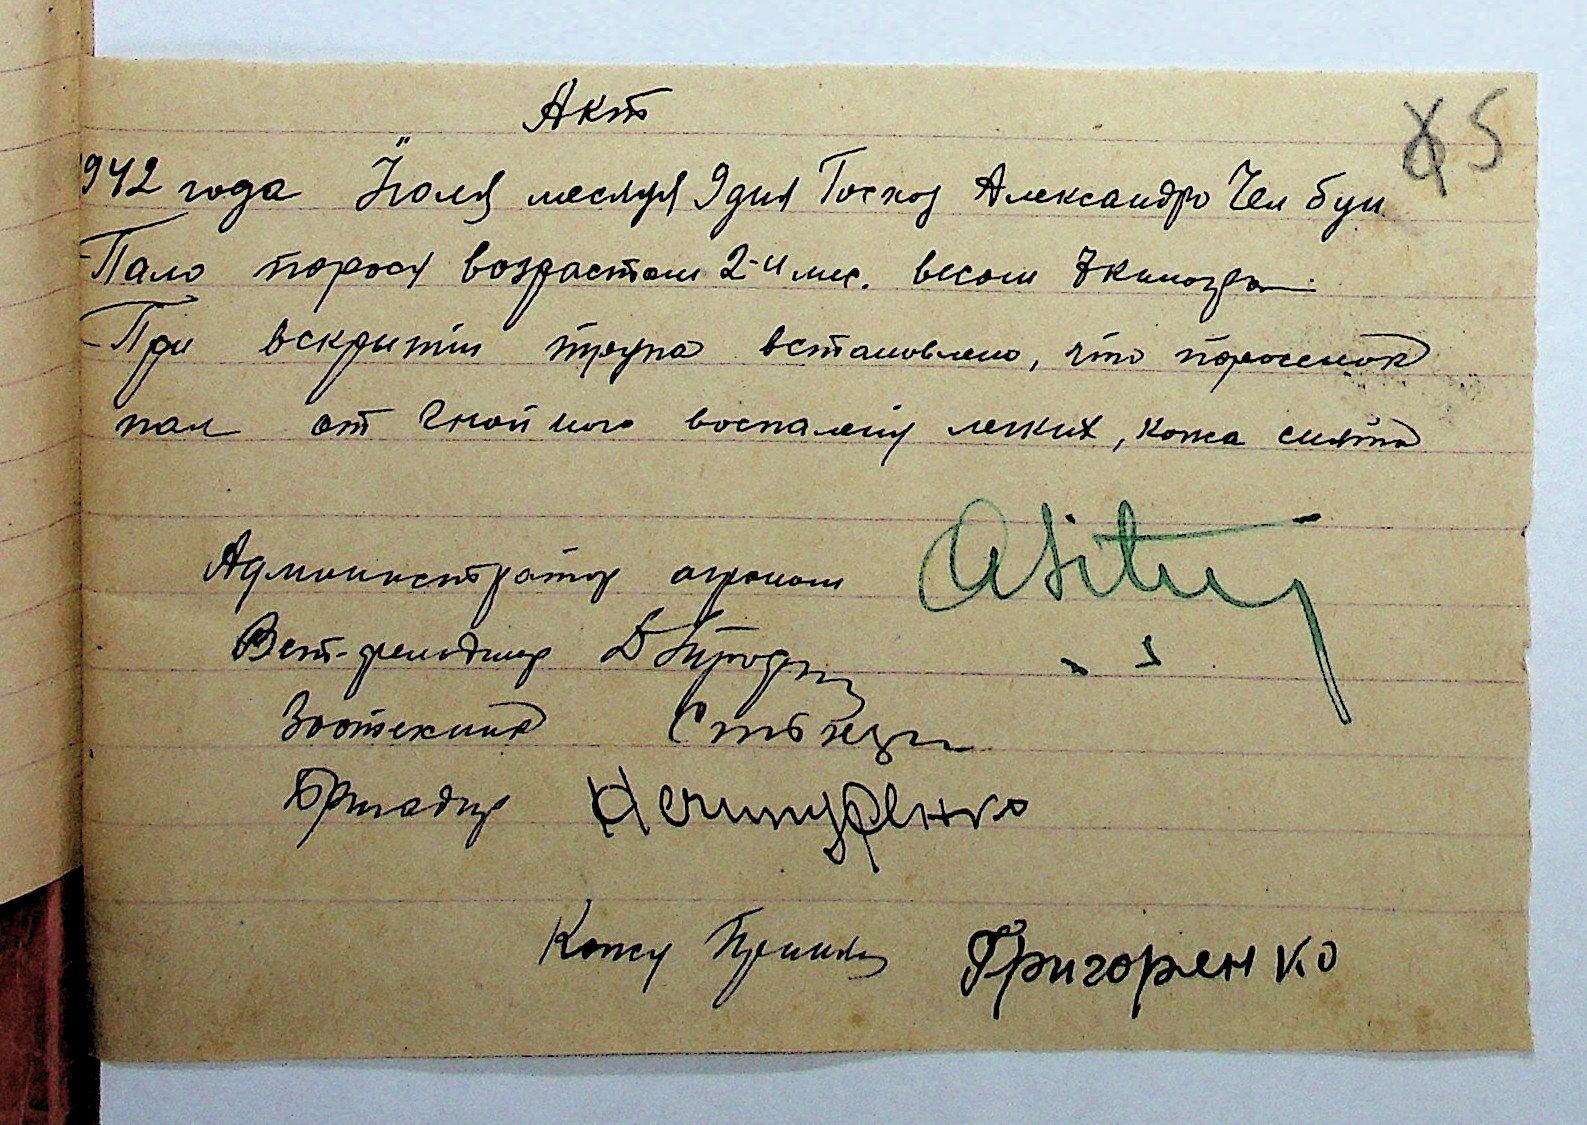 Акт
5
942 года Йюля месяця 9 дня Госхоз Александро Чел бун
Пало порося возрастом 2-и мес. весом 7 килогра
При вскрытии трупа встановлено, что поросенок
пал от гнойного воспаления легких, кожа снята
Администратор агроном
Вет-фельдшер
Зоотехник
Бригадир Нечипуренко
Кожу Принял Григоренко